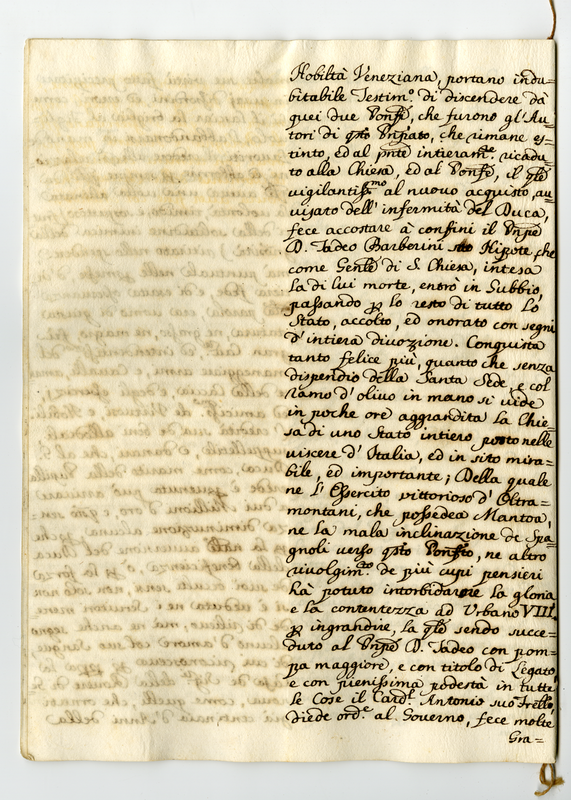 Nobiltà Veneziana, portano indu=
bitabile Testim.º di discendere dà
quei due Ponfi, che furono gl'Au=
tori di qsto Pnpato, che rimane es=
tinto, ed al pnte intieram.te ricadu=
to alla Chiesa, ed al Ponfe, il qle
vigilantiss.mo al nuovo acquisto, au=
uisato dell'infermità del Duca,
fece accostare à confini il Pnpe
D. Tadeo Barberini Nipote, che
come Genle di S. Chiesa, intesa
la di lui morte, entrò in Gubbio,
passando p lo resto di tutto Lo
Stato, accolto, ed onorato con segni
d'intiera divozione. Conquista
tanto felice più, quanto che senza
dispendio della Santa Sede, e col
ramo d'olivo in mano si vide
in poche ore aggrandita la Chie=
sa di uno Stato intiero posto nelle
viscere d'Italia, ed in sito mira=
bile, ed importante; Della quale
ne l'Essercito vittorioso d'Oltra=
montani, che possedea Mantoa,
ne la mala inclinazione de Spa=
gnoli verso qsto Ponfto, ne altro
rivolgim.to de più cupi pensieri
hà potuto intorbidare la gloria
e la contentezza ad Urbano VIII.
p ingrandire, la qle sendo succe=
duto al Pnpe D. Tadeo con pom=
pa maggiore, e con titolo di Legato,
e con pienissima podestà in tutte
le Cose il Card.l Antonio suo Frello,
diede ord.e al Governo, fece molte
Gra=